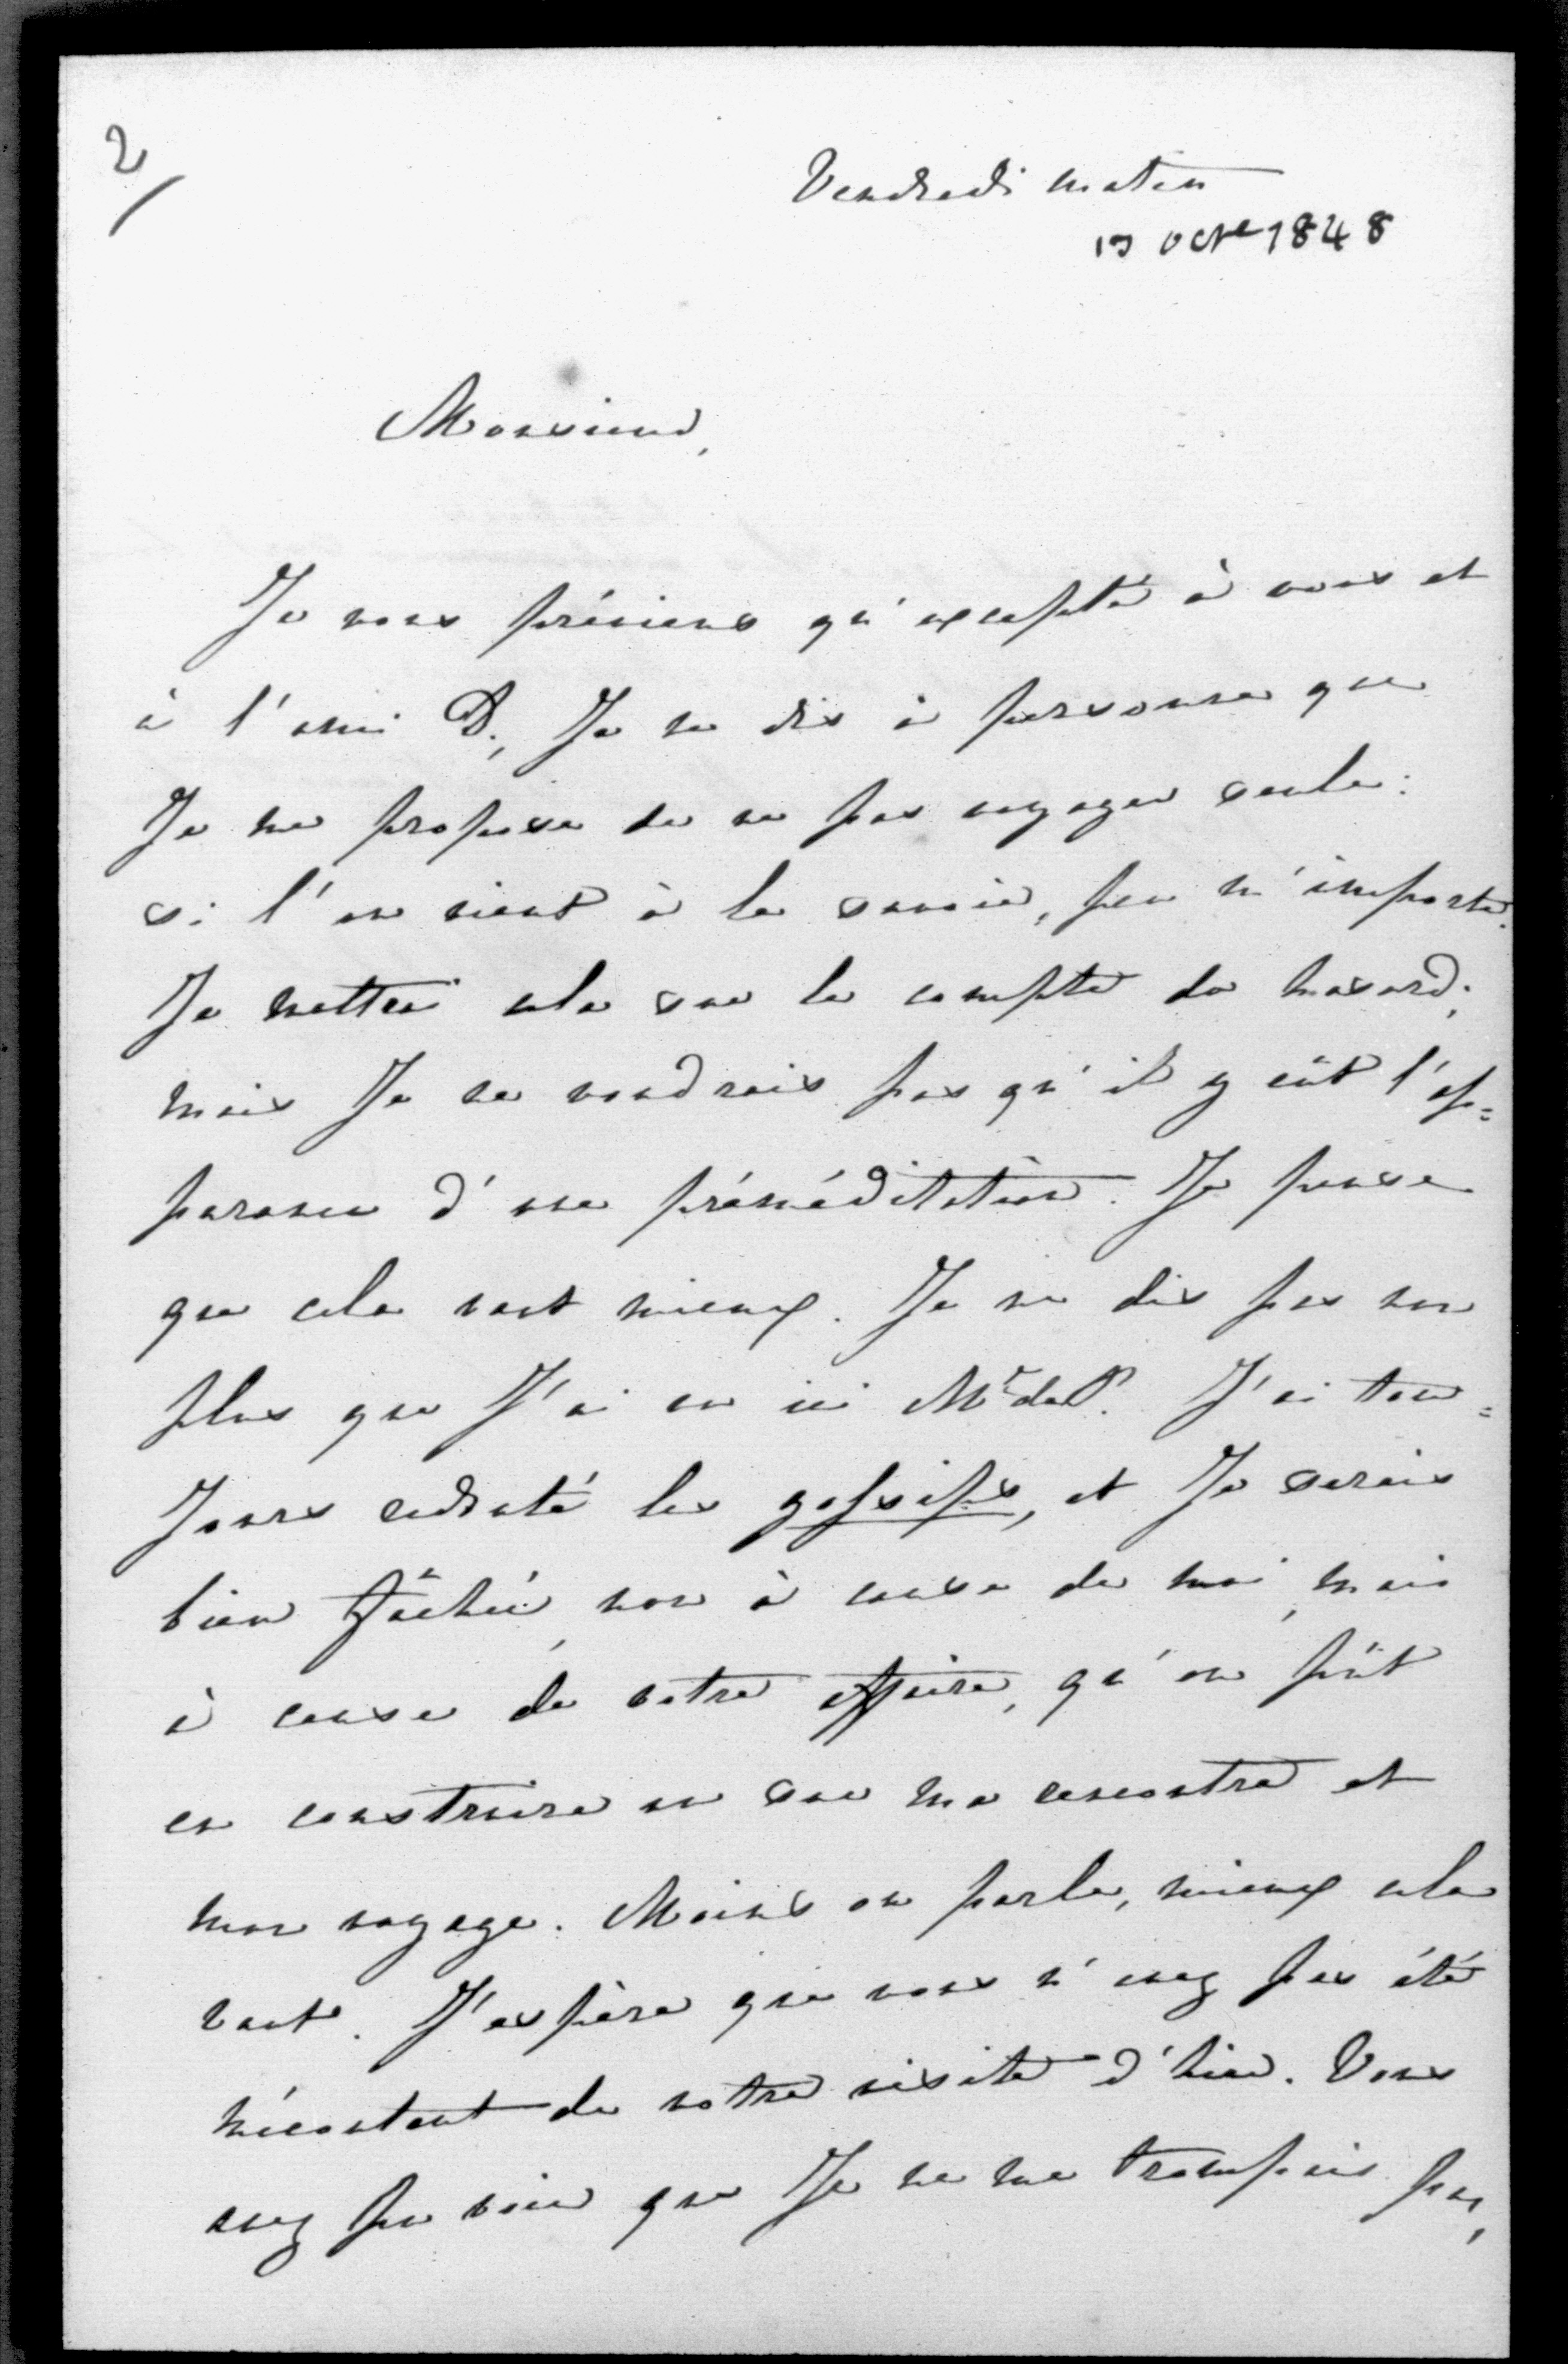 2/
Vendredi matin
13 octe 1848
Monsieur,
Je vous préviens qu'excepté à vous et
à l'ami D., Je ne dis à personne que
Je me propose de ne pas voyager seule:
si l'on vient à le savoir, peu m'importe.
Je mettrai cela sur le compte du hasard;
mais Je ne voudrais pas qu'il y eût l'ap=
parence d'une préméditation. Je pense
que cela vaut mieux. Je ne dis pas non
plus que J'ai vu ici Mr de P. J'ai tou=
Jours redouté les gossips, et Je serais
bien fâchée, non à cause de moi, mais
à cause de votre affaire, qu'on pût
en construire un sur ma rencontre et
mon voyage. Moins on parle, mieux cela
vaut. J'espère que vous n'avez pas été
mécontent de votre visite d'hier. Vous
avez pu voir que Je ne me trompais pas,